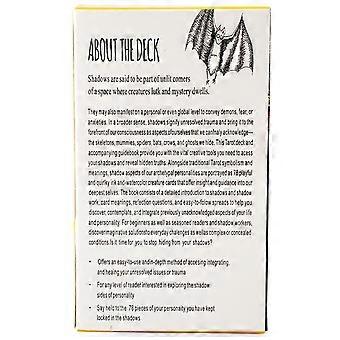 ABOUT THE DECK
Shadows are said to be part of unlit corners
of a space where creatures lutk and mystery dwells.
They may also manifest on a personal or even global level to convey demons, fear, or
anxieties. In a broader sense, shadows signify unresolved trauma and bring it to the
forefront of our consciousness as aspects of ourselves that we can hardly acknowledge—
the skeletons, mummies, spiders, bats, crows, and ghosts we hide. This Tarot deck and
accompanying guidebook provide you with the vital creative tools you need to access
your shadows and reveal hidden truths. Alongside traditional Tarot symbolism and
meanings, shadow aspects of our archetypal personalities are portrayed as 78 playful
and quirky ink and watercolor creature cards that offer insight and guidance into our
deepest selves. The book consists of a detailed introduction to shadows and shadow
work, card meanings, reflection questions, and easy-to-follow spreads to help you
discover, contemplate, and integrate previously unacknowledged aspects of your life
and personality. For beginners as well as seasoned readers and shadow workers,
discover imaginative solutions to everyday challenges as well as complex or concealed
conditions. Is it time for you to stop hiding from your shadows?
• Offers an easy-to-use and in-depth method of accessing, integrating,
and healing your unresolved issues or trauma
• For any level of reader interested in exploring the shadow
sides of personality
• Say hello to the 78 pieces of your personality you have kept
locked in the shadows